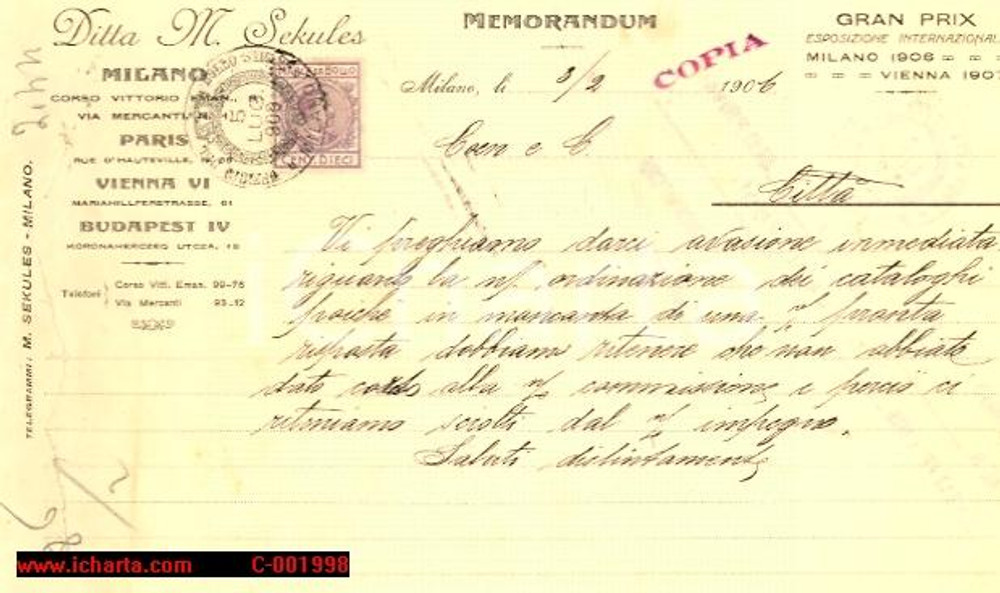 Ditta M. Sekules
MEMORANDUM
GRAN PRIX
ESPOSIZIONE INTERNAZIONAL
MILANO 1906
VIENNA 190
COPIA
MILANO
CORSO VITTORIO EMAN.,
VIA MERCANTI
PARIS
RUE D'HAUTEVILLE,
VIENNA VI
MARIAHILFERSTRASSE, 61
BUDAPEST IV
KORONAHERCZEG UTCZA, 18
Telefoni
Corso Vitt. Eman. 99-75
Via Mercanti 93-12
TELEGRAMMI: M. SEKULES - MILANO.
BOLLO
CENT. DIECI
Milano, li 3/2 1906
Coen e C.
Città
Vi preghiamo darci evasione inmediata
riguardo la n/ ordinazione dei cataloghi
poiché in mancanza di una v/ pronta
risposta dobbiamo ritenere che non abbiate
dato corso alla n/ commissione e perciò ci
riteniamo sciolti dal n/ impegno.
Saluti distintamente
www.icharta.com C-001998